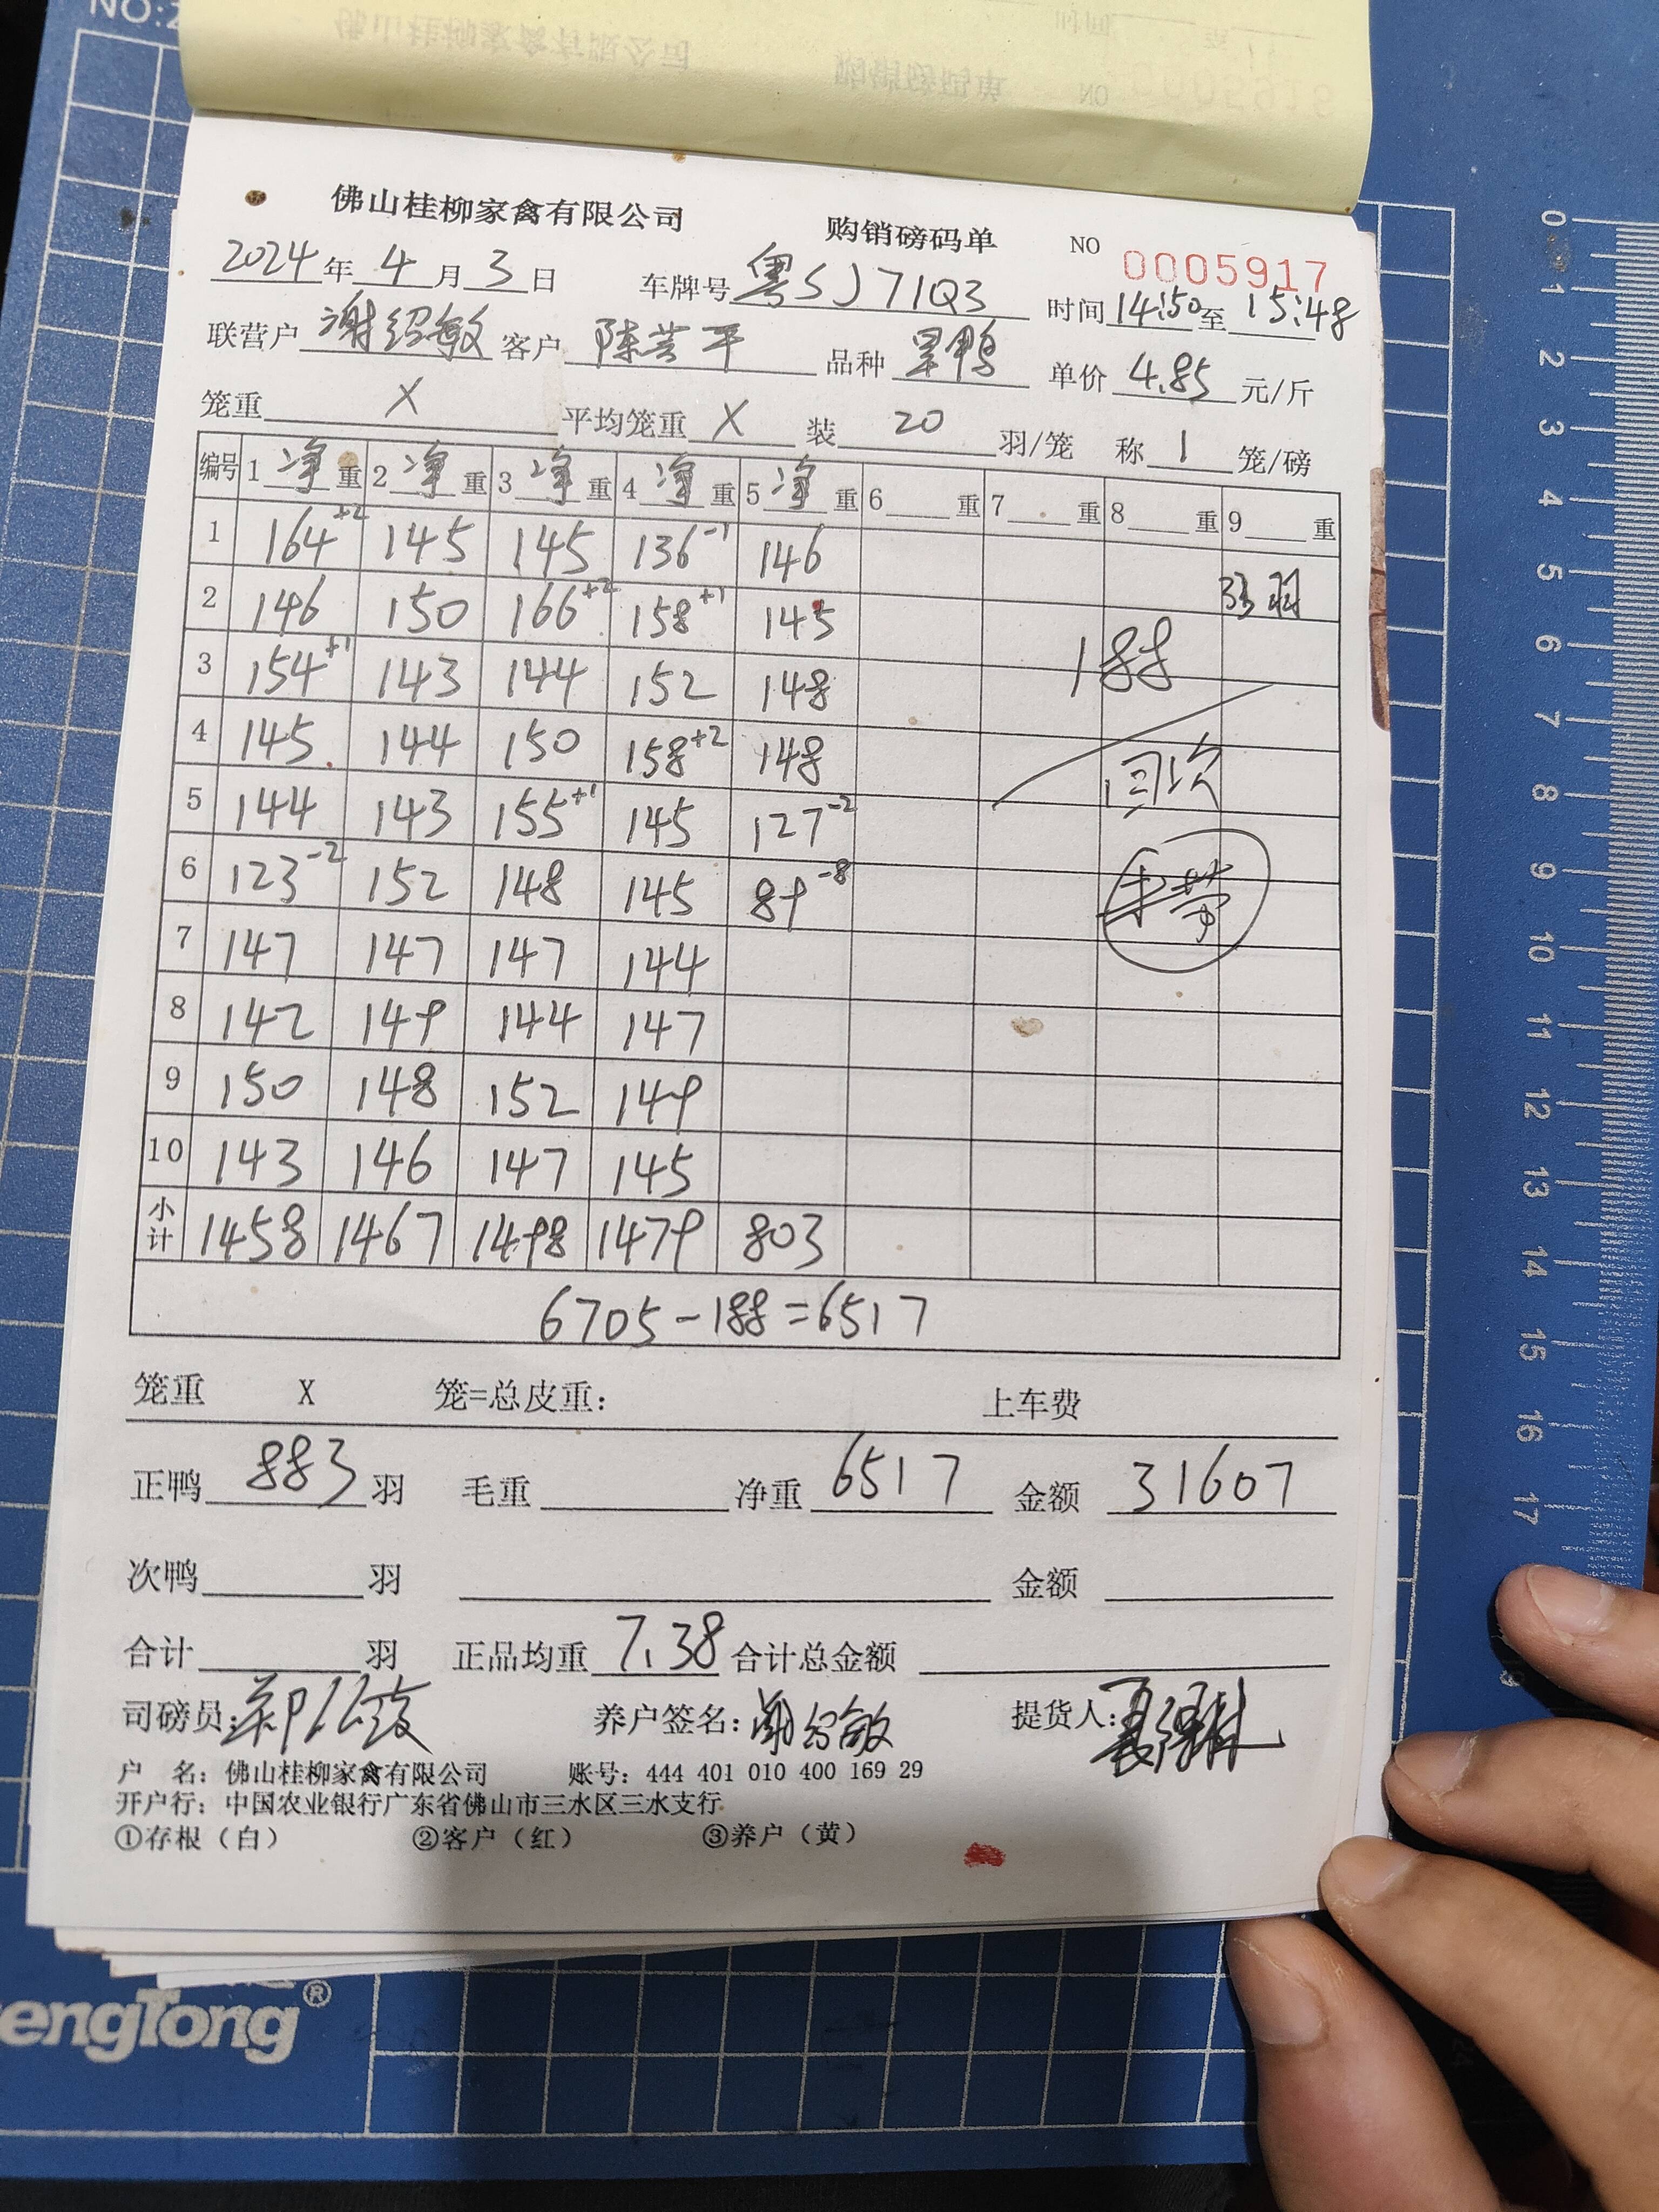 佛山桂柳家禽有限公司 购销磅码单 NO 0005917
2024年4月3日 车牌号粤SJ71Q3 时间14:50至15:48
联营户谢绍敏 客户陈芸平 品种 单价4.85元/斤
笼重X 平均笼重X 装20羽/笼 称1笼/磅
编号 1净重 2净重 3净重 4净重 5净重 6重 7重 8重 9重
1 164+2 145 145 136-1 146
2 146 150 166+2 158+1 145 羽
3 154+1 143 144 152 148 188
4 145 144 150 158+2 148 回次
5 144 143 155+1 145 127-2
6 123-2 152 148 145 89-8
7 147 147 147 144
8 142 149 144 147
9 150 148 152 149
10 143 146 147 145
小计 1458 1467 1498 1479 803
6705-188=6517
笼重 X 笼=总皮重: 上车费
正鸭883羽 毛重 净重6517 金额31607
次鸭 羽 金额
合计 羽 正品均重7.38 合计总金额
司磅员: 养户签名:谢绍敏 提货人:
户 名: 佛山桂柳家禽有限公司 账号: 444 401 010 400 169 29
开户行: 中国农业银行广东省佛山市三水区三水支行
①存根(白) ②客户(红) ③养户(黄)
engTong®
0
1
2
3
4
5
6
7
8
9
10
11
12
13
14
15
16
17